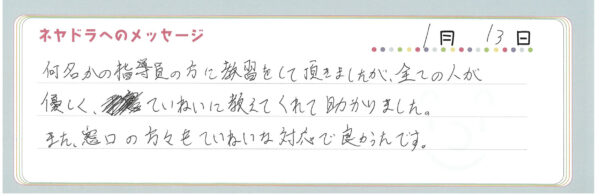 ネヤドラへのメッセージ 1月 13日
何名かの指導員の方に教習をして頂きましたが、全ての人が
優しく、ていねいに教えてくれて助かりました。
また、窓口の方々もていねいな対応で良かったです。